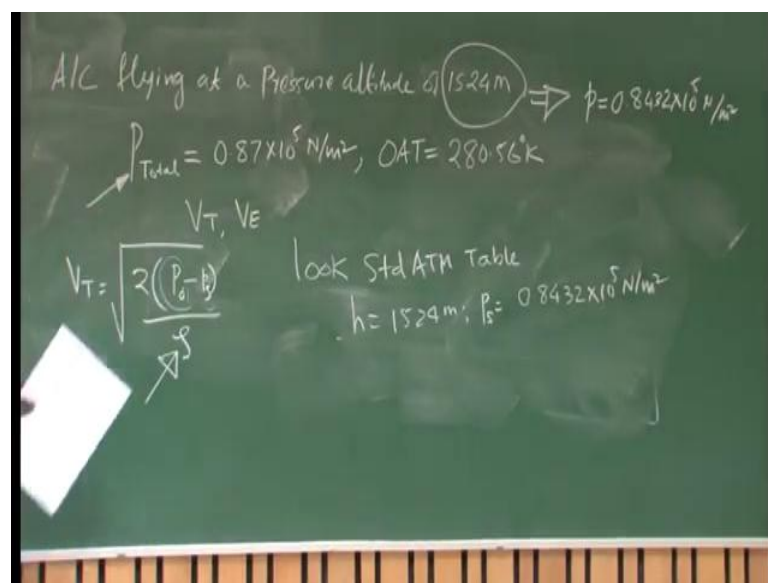 A/C flying at a Pressure altitude of 1524m ⇒ p=0.8432×10⁵ N/m²
P_Total = 0.87×10⁵ N/m², OAT= 280.56°K
V_T, V_E
V_T = √(2(P_0-P_s)/ρ)
look Std ATM Table
h= 1524m; P_s= 0.8432×10⁵ N/m²